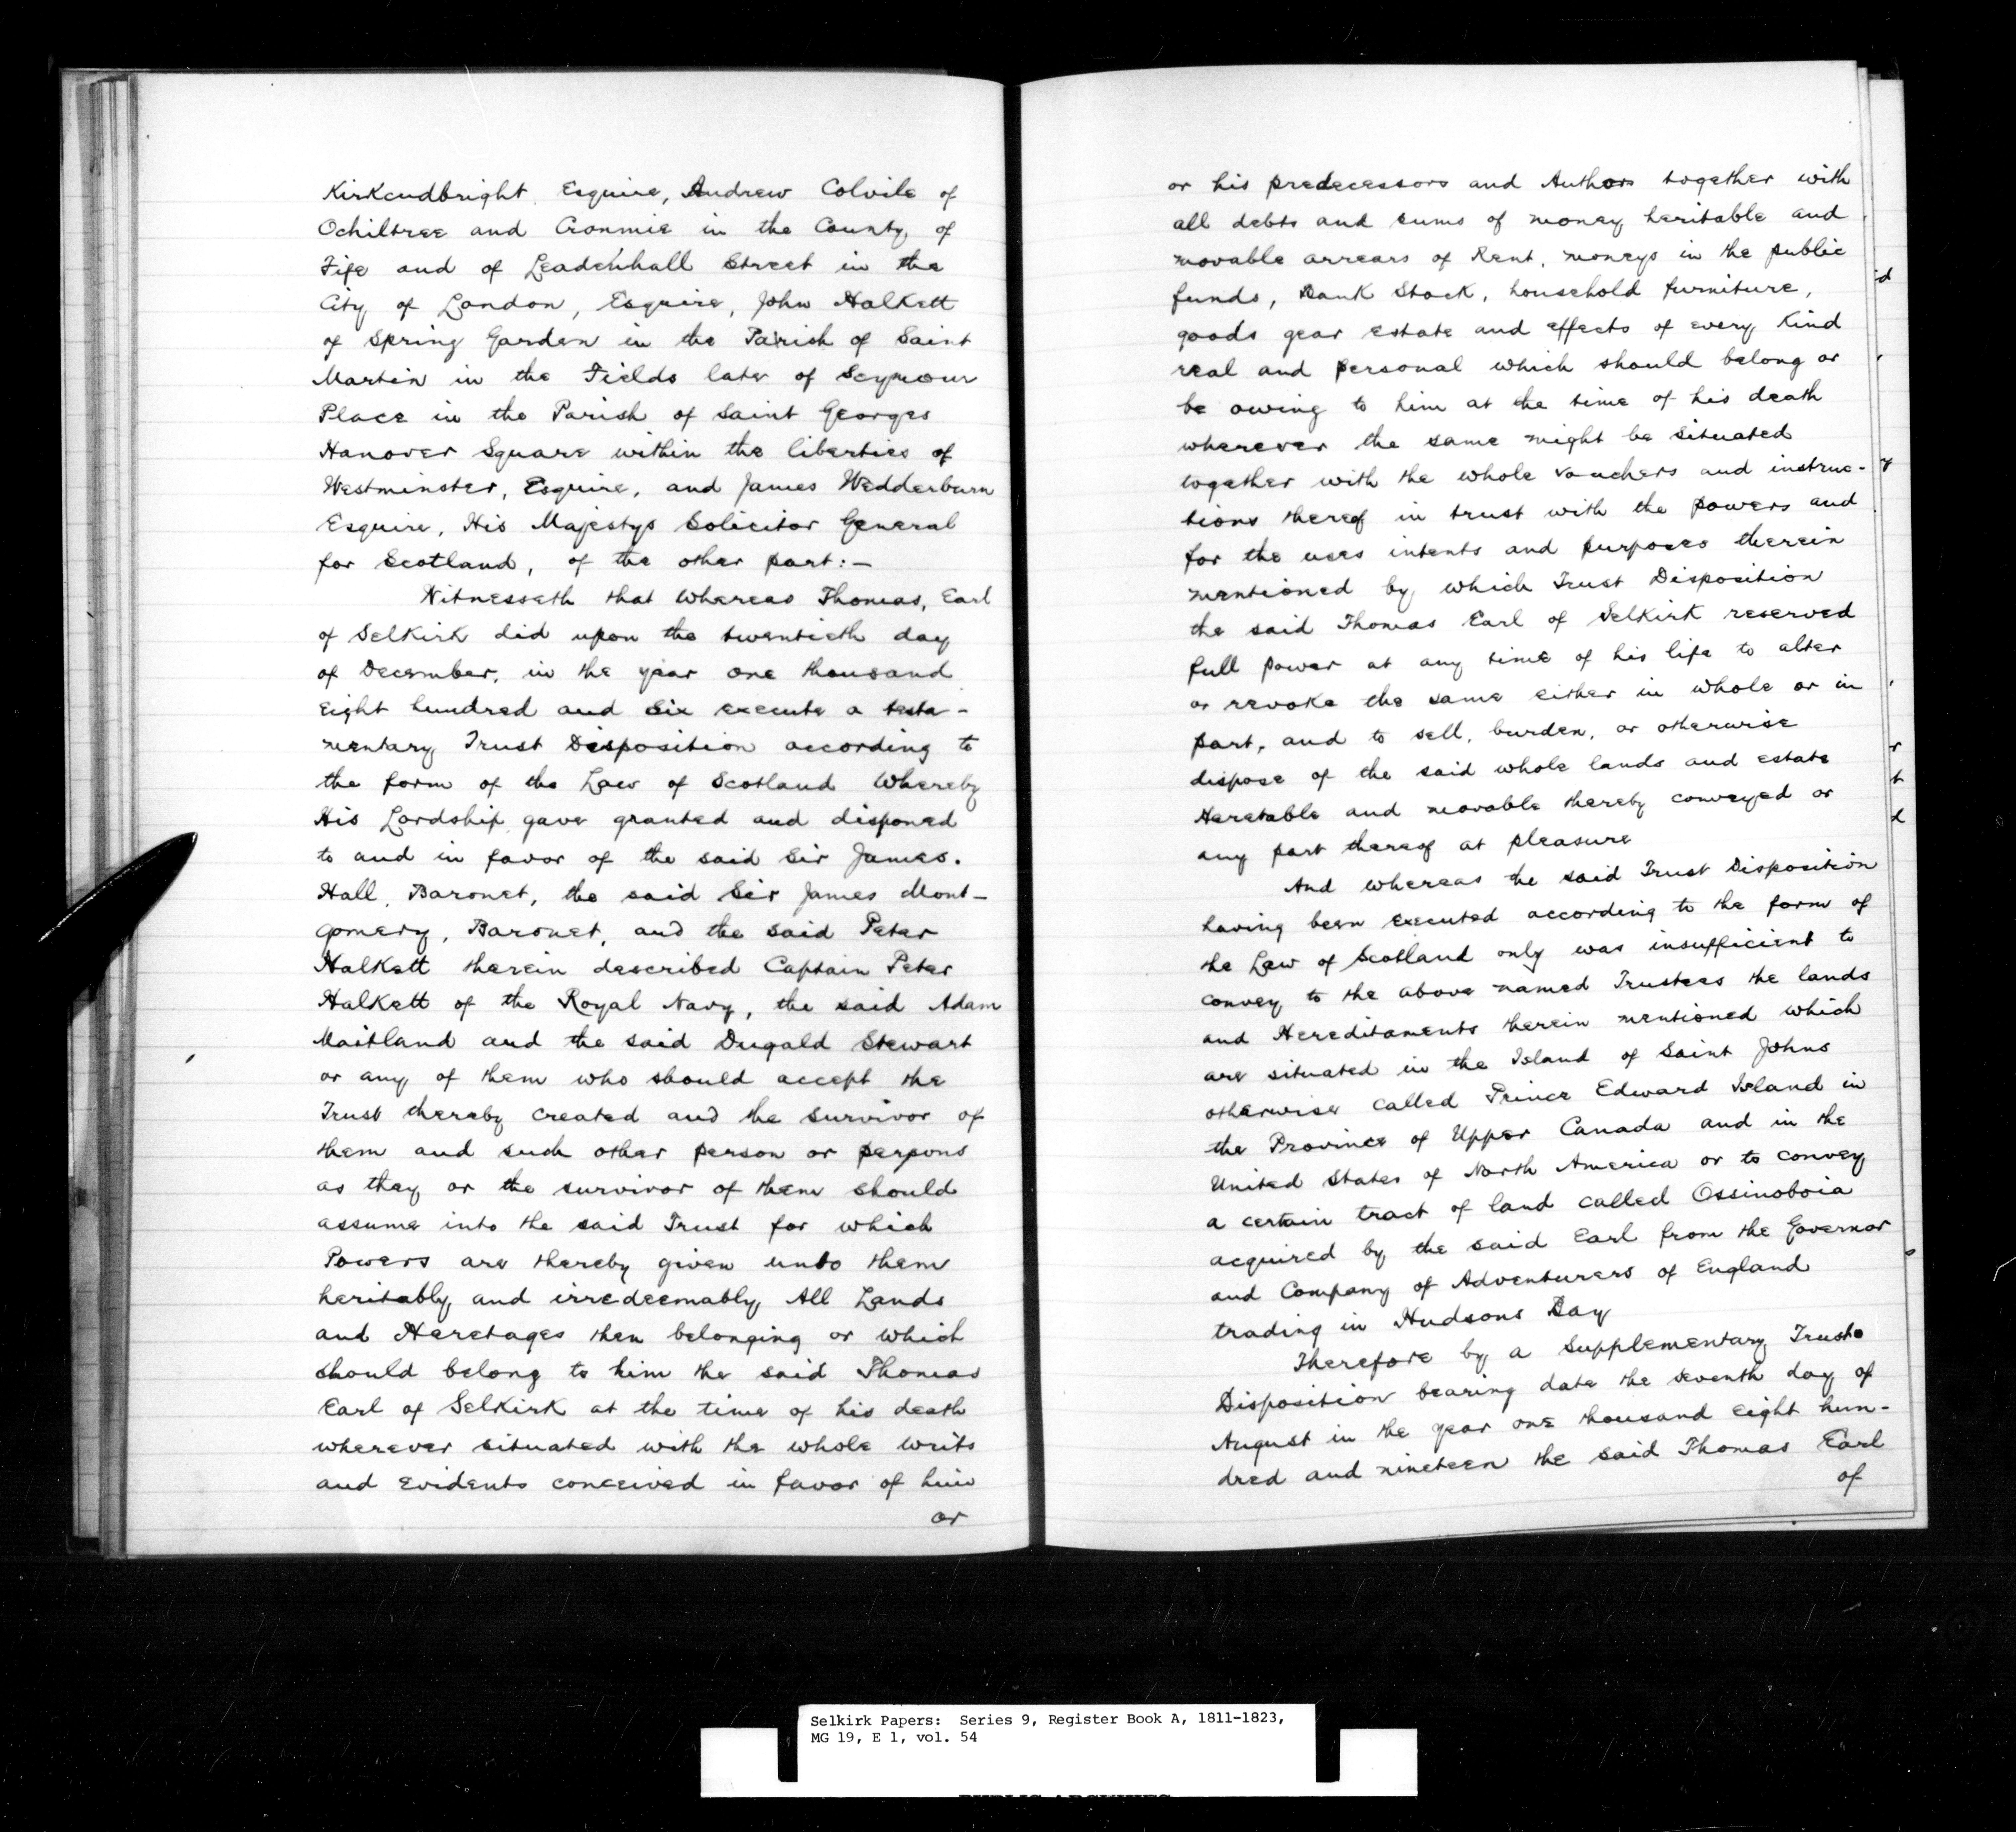 Kirkcudbright Esquire, Andrew Colvile of
Ochiltree and Cronmie in the County of
Fife and of Leadenhall Street in the
City of London, Esquire, John Halkett
of Spring Garden in the Parish of Saint
Martin in the Fields later of Seymour
Place in the Parish of Saint Georges
Hanover Square within the liberties of
Westminster, Esquire, and James Wedderburn
Esquire, His Majestys Solicitor General
for Scotland, of the other part:—
Witnesseth that Whereas Thomas, Earl
of Selkirk did upon the twentieth day
of December, in the year one thousand
eight hundred and six execute a testa-
mentary Trust Disposition according to
the form of the Law of Scotland Whereby
His Lordship gave granted and disponed
to and in favor of the said Sir James.
Hall, Baronet, the said Sir James Mont-
gomery, Baronet, and the said Peter
Halkett therein described Captain Peter
Halkett of the Royal Navy, the said Adam
Maitland and the said Dugald Stewart
or any of them who should accept the
Trust thereby created and the survivor of
them and such other person or persons
as they or the survivor of them should
assume into the said Trust for which
Powers are thereby given unto them
heritably and irredeemably All Lands
and Heretages then belonging or which
should belong to him the said Thomas
Earl of Selkirk at the time of his death
wherever situated with the whole writs
and Evidents conceived in favor of him
or
or his predecessors and Authors together with
all debts and sums of money heritable and
movable arrears of Rent, moneys in the public
funds, Bank Stock, household furniture,
goods gear estate and effects of every Kind
real and personal which should belong or
be owing to him at the time of his death
wherever the same might be situated
together with the whole vouchers and instruc-
tions thereof in trust with the powers and
for the uses intents and purposes therein
mentioned by which Trust Disposition
the said Thomas Earl of Selkirk reserved
full power at any time of his life to alter
or revoke the same either in whole or in
part, and to sell, burden, or otherwise
dispose of the said whole lands and estate
Heretable and movable thereby conveyed or
any part thereof at pleasure
And whereas the said Trust Disposition
having been executed according to the form of
the Law of Scotland only was insufficient to
convey to the above named Trustees the lands
and Hereditaments therein mentioned which
are situated in the Island of Saint Johns
otherwise called Prince Edward Island in
the Province of Upper Canada and in the
United States of North America or to convey
a certain tract of land called Ossinoboia
acquired by the said Earl from the Governor
and Company of Adventurers of England
trading in Hudsons Bay
Therefore by a Supplementary Trust
Disposition bearing date the seventh day of
August in the year one thousand eight hun-
dred and nineteen the said Thomas Earl
of
Selkirk Papers: Series 9, Register Book A, 1811-1823,
MG 19, E 1, vol. 54